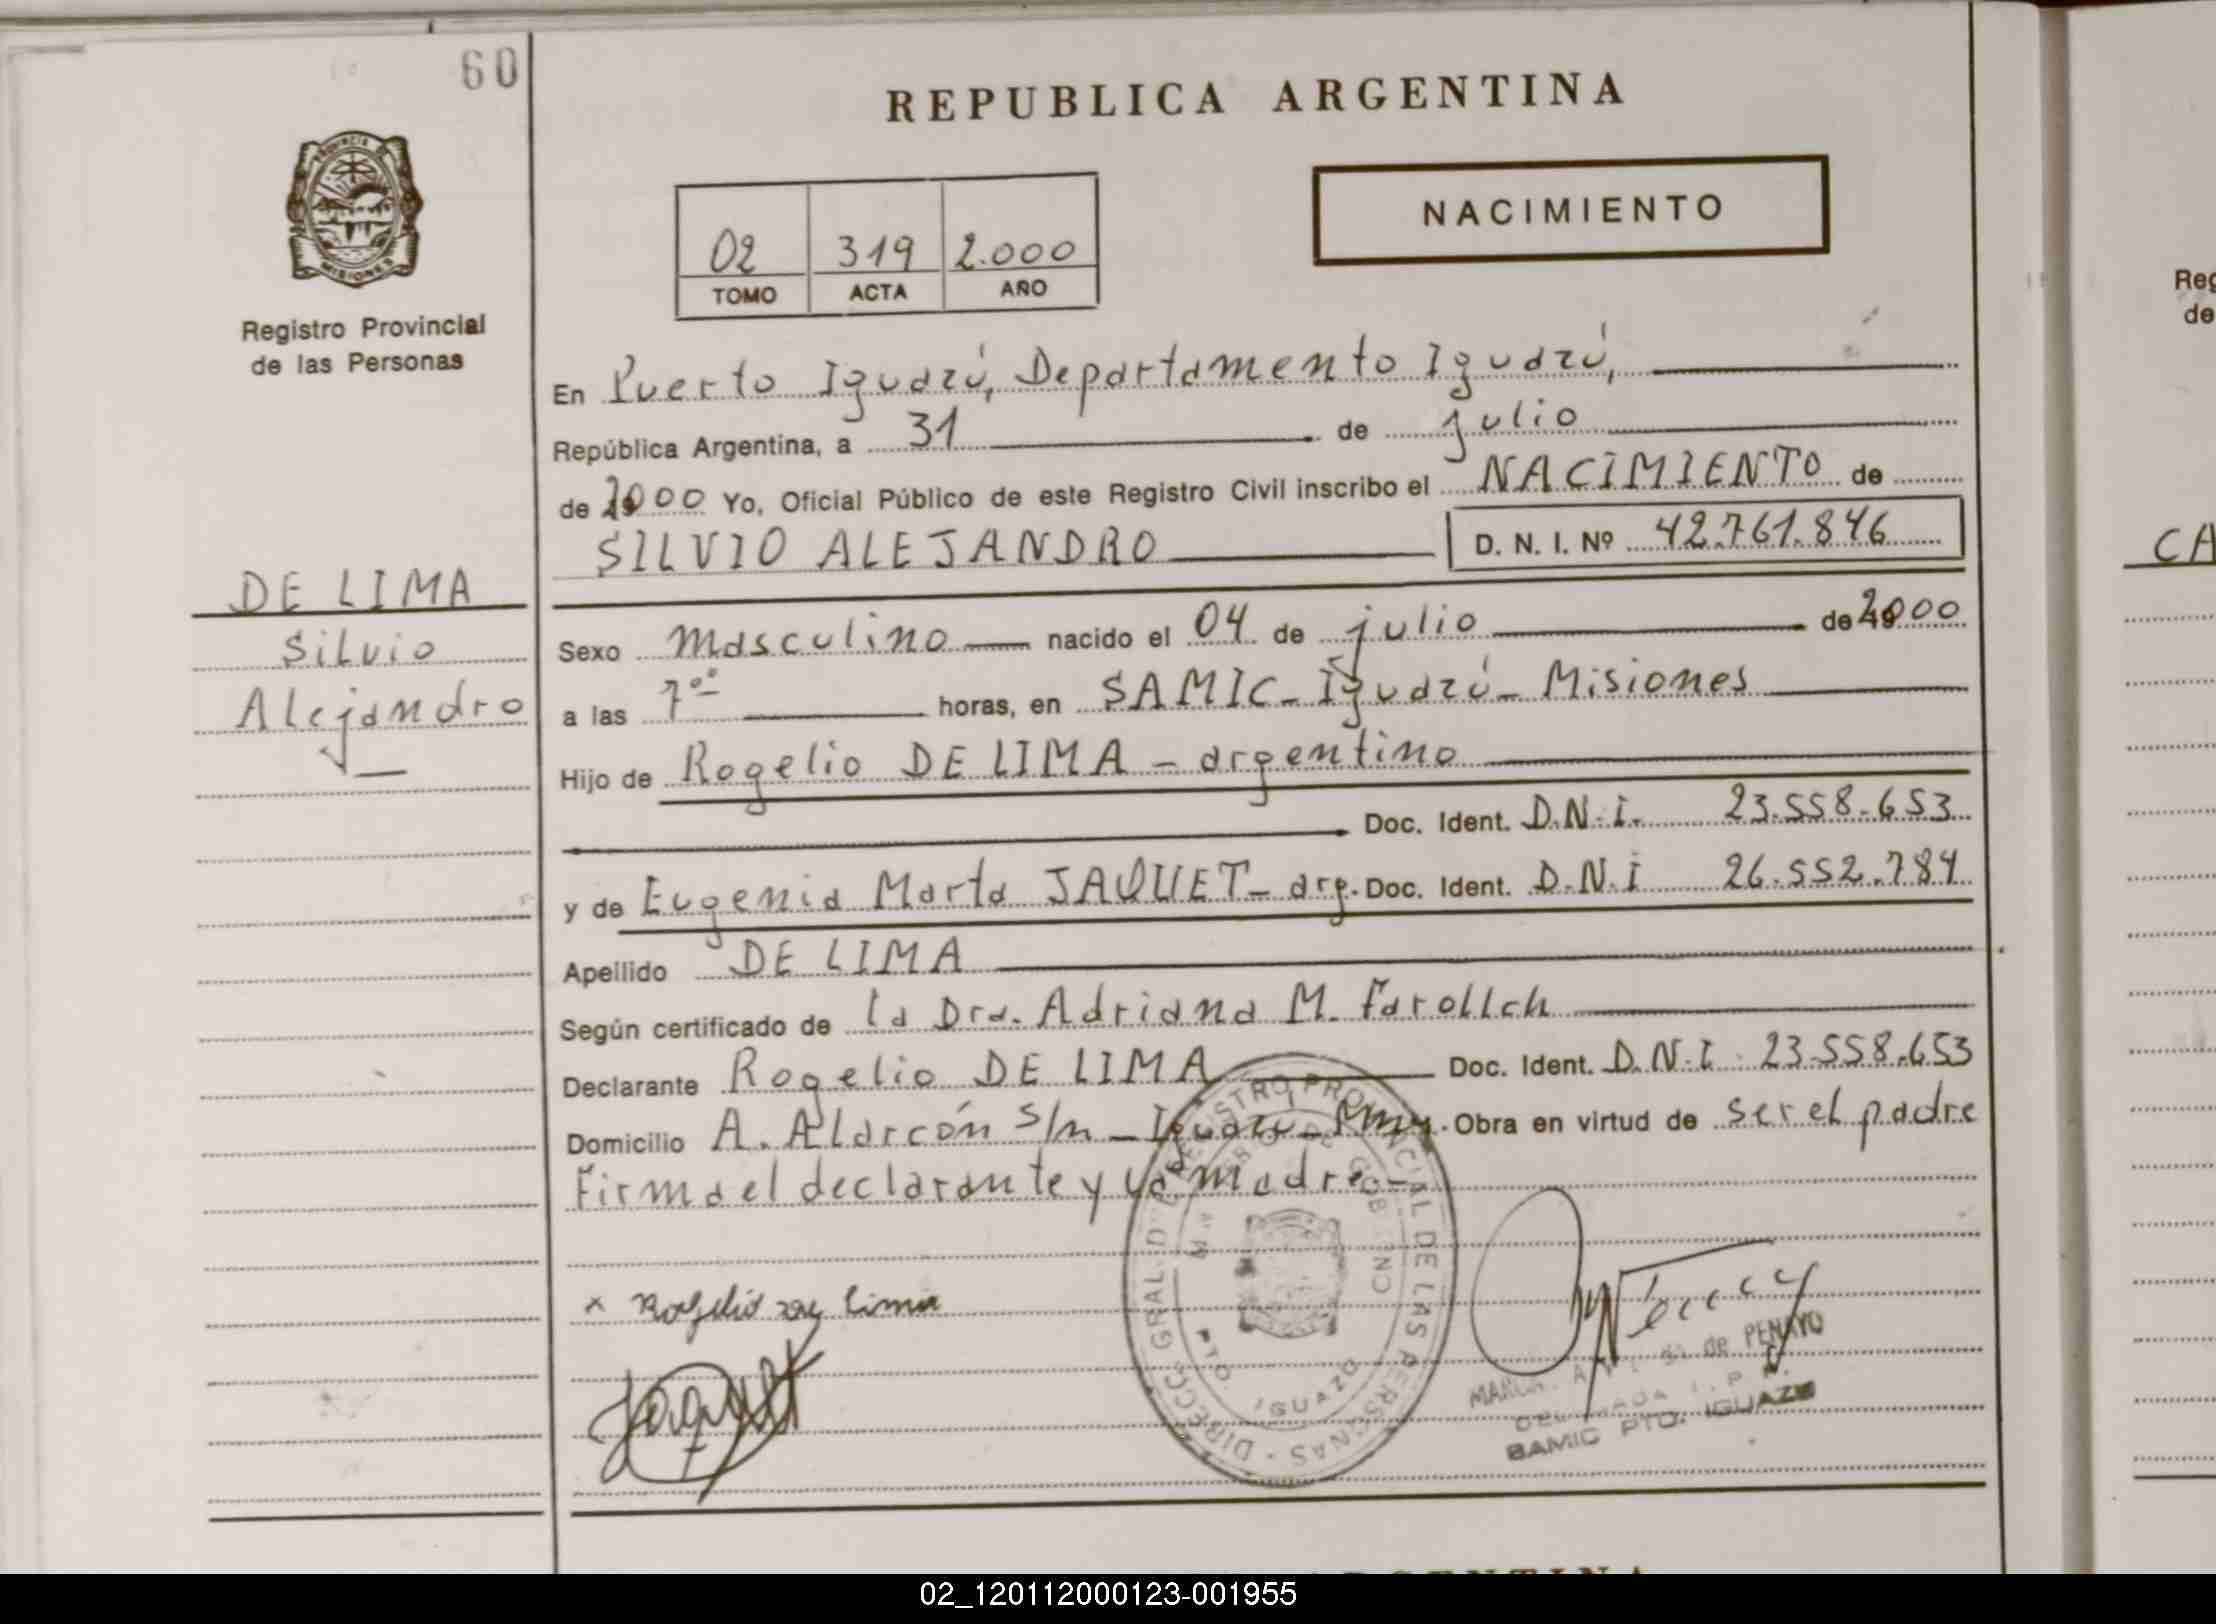 60
REPUBLICA ARGENTINA
PROVINCIA DE
MISIONES
Registro Provincial
de las Personas
02 319 2.000
TOMO ACTA AÑO
NACIMIENTO
En Puerto Iguazú, Departamento Iguazú,
República Argentina, a 31 de julio
de 2000 Yo, Oficial Público de este Registro Civil inscribo el NACIMIENTO de
SILVIO ALEJANDRO D. N. I. Nº 42.761.846
DE LIMA
Silvio
Alejandro
Sexo masculino nacido el 04 de julio de 2000
a las 7°° horas, en SAMIC - Iguazú - Misiones
Hijo de Rogelio DE LIMA - argentino
Doc. Ident. D.N.I. 23.558.653
y de Eugenia Marta JAQUET - arg. Doc. Ident. D.N.I 26.552.784
Apellido DE LIMA
Según certificado de la Dra. Adriana M. Farollch
Declarante Rogelio DE LIMA Doc. Ident. D.N.I. 23.558.653
Domicilio A. Alarcón s/n - Iguazú - Obra en virtud de ser el padre
Firma el declarante y la madre.-
x Rogelio de lima
Jaquet
DIRECC. GRAL. DEL REGISTRO PROVINCIAL DE LAS PERSONAS
GOBIERNO
PTO. IGUAZÚ
de PENAYO
SAMIC PTO. IGUAZU
CA
Reg
de
02_120112000123-001955